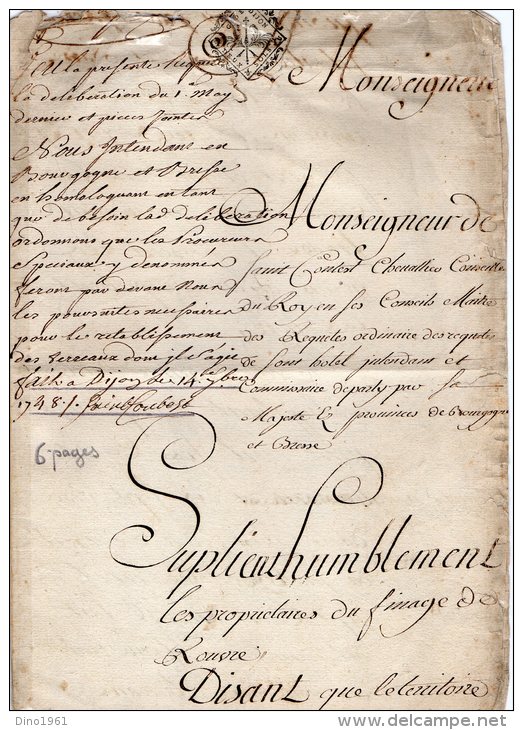 Monseigneur
Vu la presente requete
la deliberation du 1er may
dernier et pieces jointes
Nous Intendant en
Bourgogne et Bresse
en homologuant en tant
que de besoin lad deliberation
ordonnons que les Procureurs
Speciaux y denommes
feront par devant Nous
les poursuites necessaires
pour le retablissement
des terreaux dont il s'agit
fait a Dijon le 14 7bre
1748
6 pages
Monseigneur de
saint Contest Chevallier Conseiller
du Roy en ses Conseils Maitre
des Requetes ordinaire des requetes
de sont hotel intendant et
Commissaire departy par sa
Majeste Es provinces de Bourgogne
et Bresse
Suplient humblement
les propriétaires du finage de
Rouvre
Disant que le territoire
Dino1961